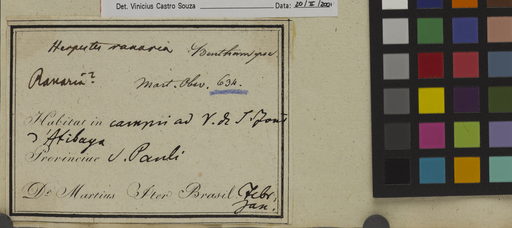 Det. Vinicius Castro Souza Data: 20/III/2001
Herpestes ranaria Bentham
Ranaria? Mart. Obs. 634.
Habitat in campis ad V. de S
Atibaya
Provinciae S. Pauli
Dr Martius Iter Brasil. Febr.
Jan.